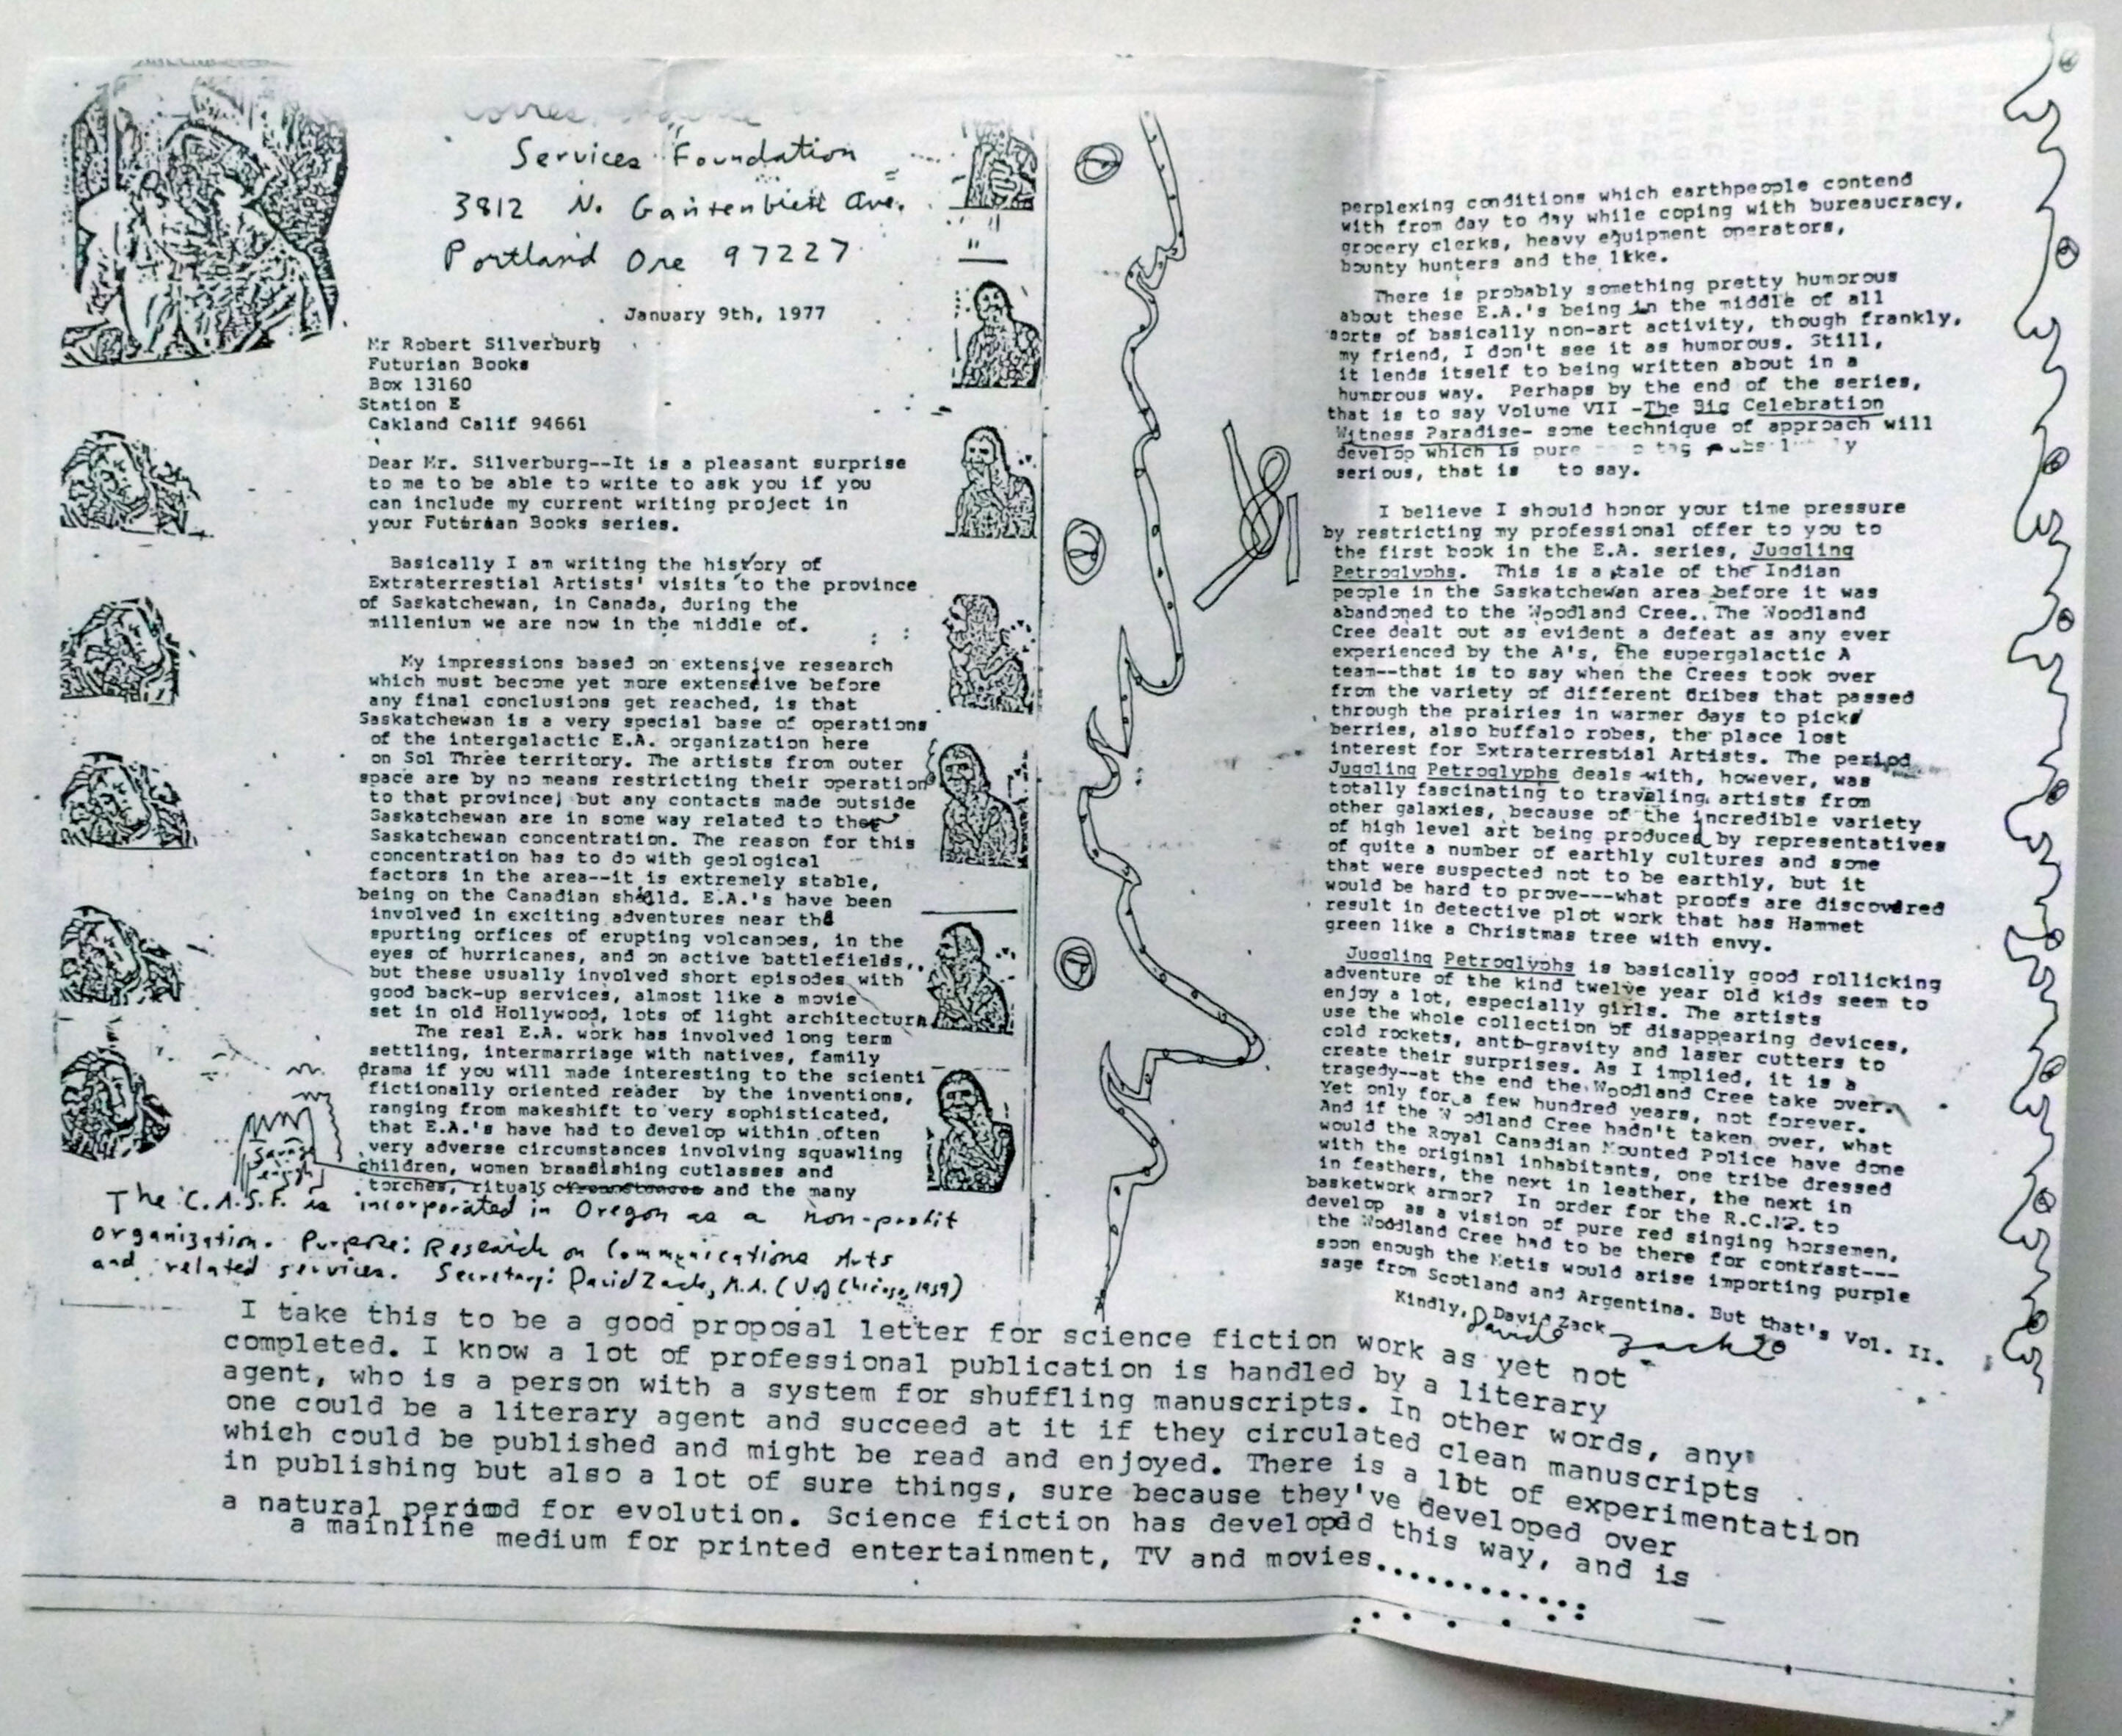 Services Foundation
3812 N. Gantenbien Ave.
Portland Ore 97227
January 9th, 1977
Mr Robert Silverburg
Futurian Books
Box 13160
Station E
Oakland Calif 94661
Dear Mr. Silverburg--It is a pleasant surprise
to me to be able to write to ask you if you
can include my current writing project in
your Futurian Books series.
Basically I am writing the history of
Extraterrestial Artists' visits to the province
of Saskatchewan, in Canada, during the
millenium we are now in the middle of.
My impressions based on extensive research
which must become yet more extensive before
any final conclusions get reached, is that
Saskatchewan is a very special base of operations
of the intergalactic E.A. organization here
on Sol Three territory. The artists from outer
space are by no means restricting their operation
to that province; but any contacts made outside
Saskatchewan are in some way related to the
Saskatchewan concentration. The reason for this
concentration has to do with geological
factors in the area--it is extremely stable,
being on the Canadian shield. E.A.'s have been
involved in exciting adventures near the
spurting orfices of erupting volcanoes, in the
eyes of hurricanes, and on active battlefields,
but these usually involved short episodes with
good back-up services, almost like a movie
set in old Hollywood, lots of light architecture
The real E.A. work has involved long term
settling, intermarriage with natives, family
drama if you will made interesting to the scienti
fictionally oriented reader by the inventions,
ranging from makeshift to very sophisticated,
that E.A.'s have had to develop within often
very adverse circumstances involving squawling
children, women braadishing cutlasses and
torches, rituals circumstances and the many
The C.A.S.F. is incorporated in Oregon as a non-profit
organization. Purpose: Research on Communications Arts
and related services. Secretary: David Zack, M.A. (U of Chicago, 1959)
perplexing conditions which earthpeople contend
with from day to day while coping with bureaucracy,
grocery clerks, heavy equipment operators,
bounty hunters and the like.
There is probably something pretty humorous
about these E.A.'s being in the middle of all
sorts of basically non-art activity, though frankly,
my friend, I don't see it as humorous. Still,
it lends itself to being written about in a
humorous way. Perhaps by the end of the series,
that is to say Volume VII -The Big Celebration
Witness Paradise- some technique of approach will
develop which is pure
serious, that is to say.
I believe I should honor your time pressure
by restricting my professional offer to you to
the first book in the E.A. series, Juggling
Petroglyphs. This is a tale of the Indian
people in the Saskatchewan area before it was
abandoned to the Woodland Cree. The Woodland
Cree dealt out as evident a defeat as any ever
experienced by the A's, the supergalactic A
team--that is to say when the Crees took over
from the variety of different tribes that passed
through the prairies in warmer days to pick
berries, also buffalo robes, the place lost
interest for Extraterrestial Artists. The period
Juggling Petroglyphs deals with, however, was
totally fascinating to traveling artists from
other galaxies, because of the incredible variety
of high level art being produced by representatives
of quite a number of earthly cultures and some
that were suspected not to be earthly, but it
would be hard to prove---what proofs are discovered
result in detective plot work that has Hammet
green like a Christmas tree with envy.
Juggling Petroglyphs is basically good rollicking
adventure of the kind twelve year old kids seem to
enjoy a lot, especially girls. The artists
use the whole collection of disappearing devices,
cold rockets, anti-gravity and laser cutters to
create their surprises. As I implied, it is a
tragedy--at the end the Woodland Cree take over.
Yet only for a few hundred years, not forever.
And if the Woodland Cree hadn't taken over, what
would the Royal Canadian Mounted Police have done
with the original inhabitants, one tribe dressed
in feathers, the next in leather, the next in
basketwork armor? In order for the R.C.MP. to
develop as a vision of pure red singing horsemen,
the Woodland Cree had to be there for contrast---
soon enough the Metis would arise importing purple
sage from Scotland and Argentina. But that's Vol. II.
Kindly, David Zack
David Zack
I take this to be a good proposal letter for science fiction work as yet not
completed. I know a lot of professional publication is handled by a literary
agent, who is a person with a system for shuffling manuscripts. In other words, any
one could be a literary agent and succeed at it if they circulated clean manuscripts
which could be published and might be read and enjoyed. There is a lot of experimentation
in publishing but also a lot of sure things, sure because they've developed over
a natural period for evolution. Science fiction has developed this way, and is
a mainline medium for printed entertainment, TV and movies...........